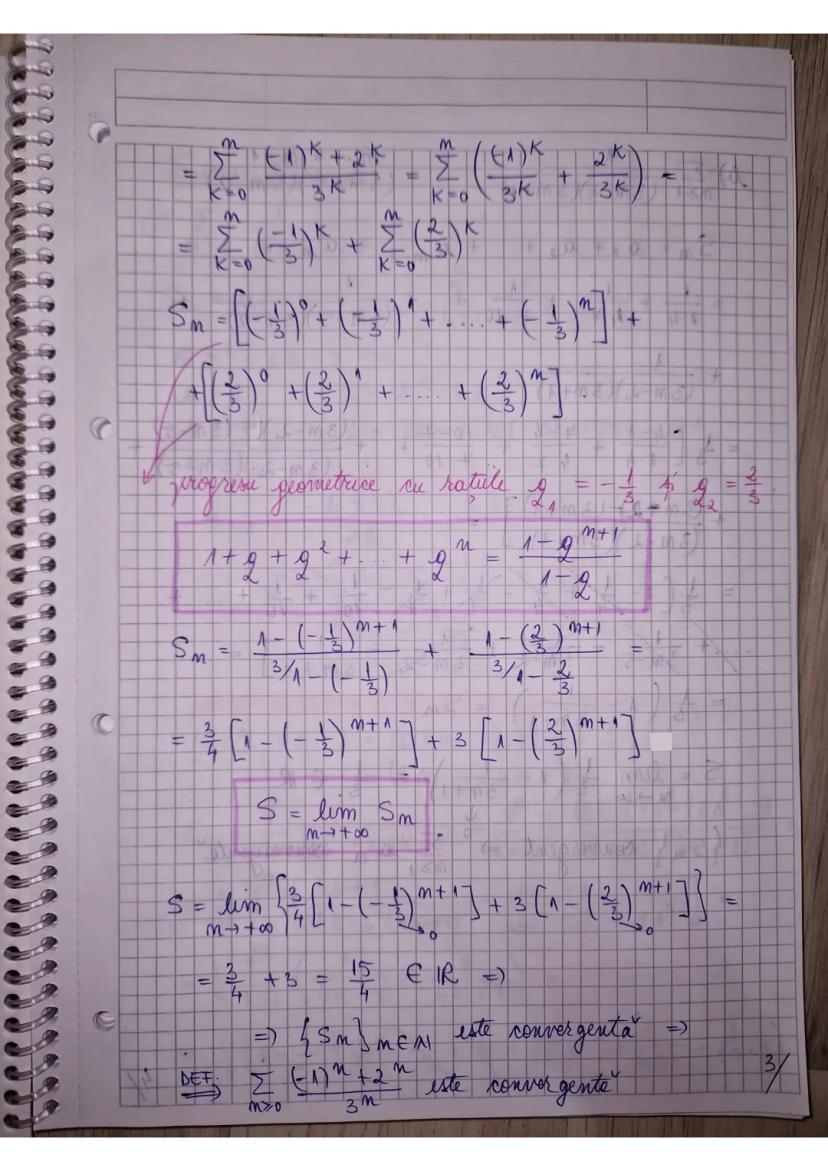 = ∑_{K=0}^{n} ((-1)^K + 2^K)/3^K = ∑_{K=0}^{n} ((-1)^K/3^K + 2^K/3^K) =
= ∑_{K=0}^{n} (-1/3)^K + ∑_{K=0}^{n} (2/3)^K
S_n = [(-1/3)^0 + (-1/3)^1 + .... + (-1/3)^n] +
+ [(2/3)^0 + (2/3)^1 + .... + (2/3)^n].
progresii geometrice cu rațiile q_1 = -1/3 și q_2 = 2/3
1 + q + q^2 + ... + q^n = (1 - q^{n+1})/(1 - q)
S_n = (1 - (-1/3)^{n+1})/(^{3/}1 - (-1/3)) + (1 - (2/3)^{n+1})/(^{3/}1 - 2/3) =
= 3/4 [1 - (-1/3)^{n+1}] + 3 [1 - (2/3)^{n+1}]
S = lim_{n→+∞} S_n.
S = lim_{n→+∞} {3/4 [1 - (-1/3)^{n+1}→0] + 3 [1 - (2/3)^{n+1}→0]} =
= 3/4 + 3 = 15/4 ∈ ℝ ⇒
⇒ {S_n}_{n∈ℕ} este convergentă ⇒
DEF. ⟹ ∑_{n≥0} ((-1)^n + 2^n)/3^n este convergentă
3/